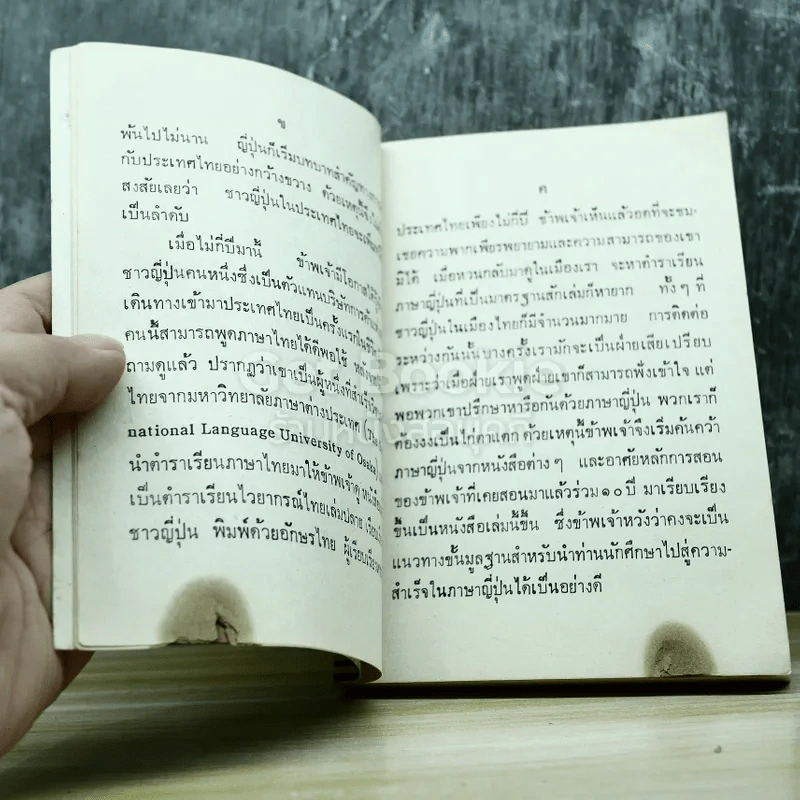 ข
พ้นไปไม่นาน ญี่ปุ่นก็เริ่มบทบาทสำคัญทาง
กับประเทศไทยอย่างกว้างขวาง ด้วยเหตุนี้จึง
สงสัยเลยว่า ชาวญี่ปุ่นในประเทศไทยจะเพิ่ม
เป็นลำดับ
เมื่อไม่กี่ปีมานี้ ข้าพเจ้ามีโอกาสได้
ชาวญี่ปุ่นคนหนึ่งซึ่งเป็นตัวแทนบริษัทการค้า
เดินทางเข้ามาประเทศไทยเป็นครั้งแรกในชีวิต
คนนี้สามารถพูดภาษาไทยได้ดีพอใช้
ถามดูแล้ว ปรากฏว่าเขาเป็นผู้หนึ่งที่สำเร็จ
ไทยจากมหาวิทยาลัยภาษาต่างประเทศ
national Language University of Osaka)
นำตำราเรียนภาษาไทยมาให้ข้าพเจ้าดู
เป็นตำราเรียนไวยากรณ์ไทยเล่มปลาย
ชาวญี่ปุ่น พิมพ์ด้วยอักษรไทย
ค
ประเทศไทยเพียงไม่กี่ปี ข้าพเจ้าเห็นแล้วอดที่จะชม-
เชยความพากเพียรพยายามและความสามารถของเขา
มิได้ เมื่อหวนกลับมาดูในเมืองเรา จะหาตำราเรียน
ภาษาญี่ปุ่นที่เป็นมาตรฐานสักเล่มก็หายาก ทั้งๆ ที่
ชาวญี่ปุ่นในเมืองไทยก็มีจำนวนมากมาย การติดต่อ
ระหว่างกันนั้นบางครั้งเรามักจะเป็นฝ่ายเสียเปรียบ
เพราะว่าเมื่อฝ่ายเราพูดฝ่ายเขาก็สามารถฟังเข้าใจ แต่
พอพวกเขาปรึกษาหารือกันด้วยภาษาญี่ปุ่น พวกเราก็
ต้องงงเป็นไก่ตาแตก ด้วยเหตุนี้ข้าพเจ้าจึงเริ่มค้นคว้า
ภาษาญี่ปุ่นจากหนังสือต่างๆ และอาศัยหลักการสอน
ของข้าพเจ้าที่เคยสอนมาแล้วร่วม ๑๐ ปี มาเรียบเรียง
ขึ้นเป็นหนังสือเล่มนี้ขึ้น ซึ่งข้าพเจ้าหวังว่าคงจะเป็น
แนวทางขั้นมูลฐานสำหรับนำท่านนักศึกษาไปสู่ความ-
สำเร็จในภาษาญี่ปุ่นได้เป็นอย่างดี